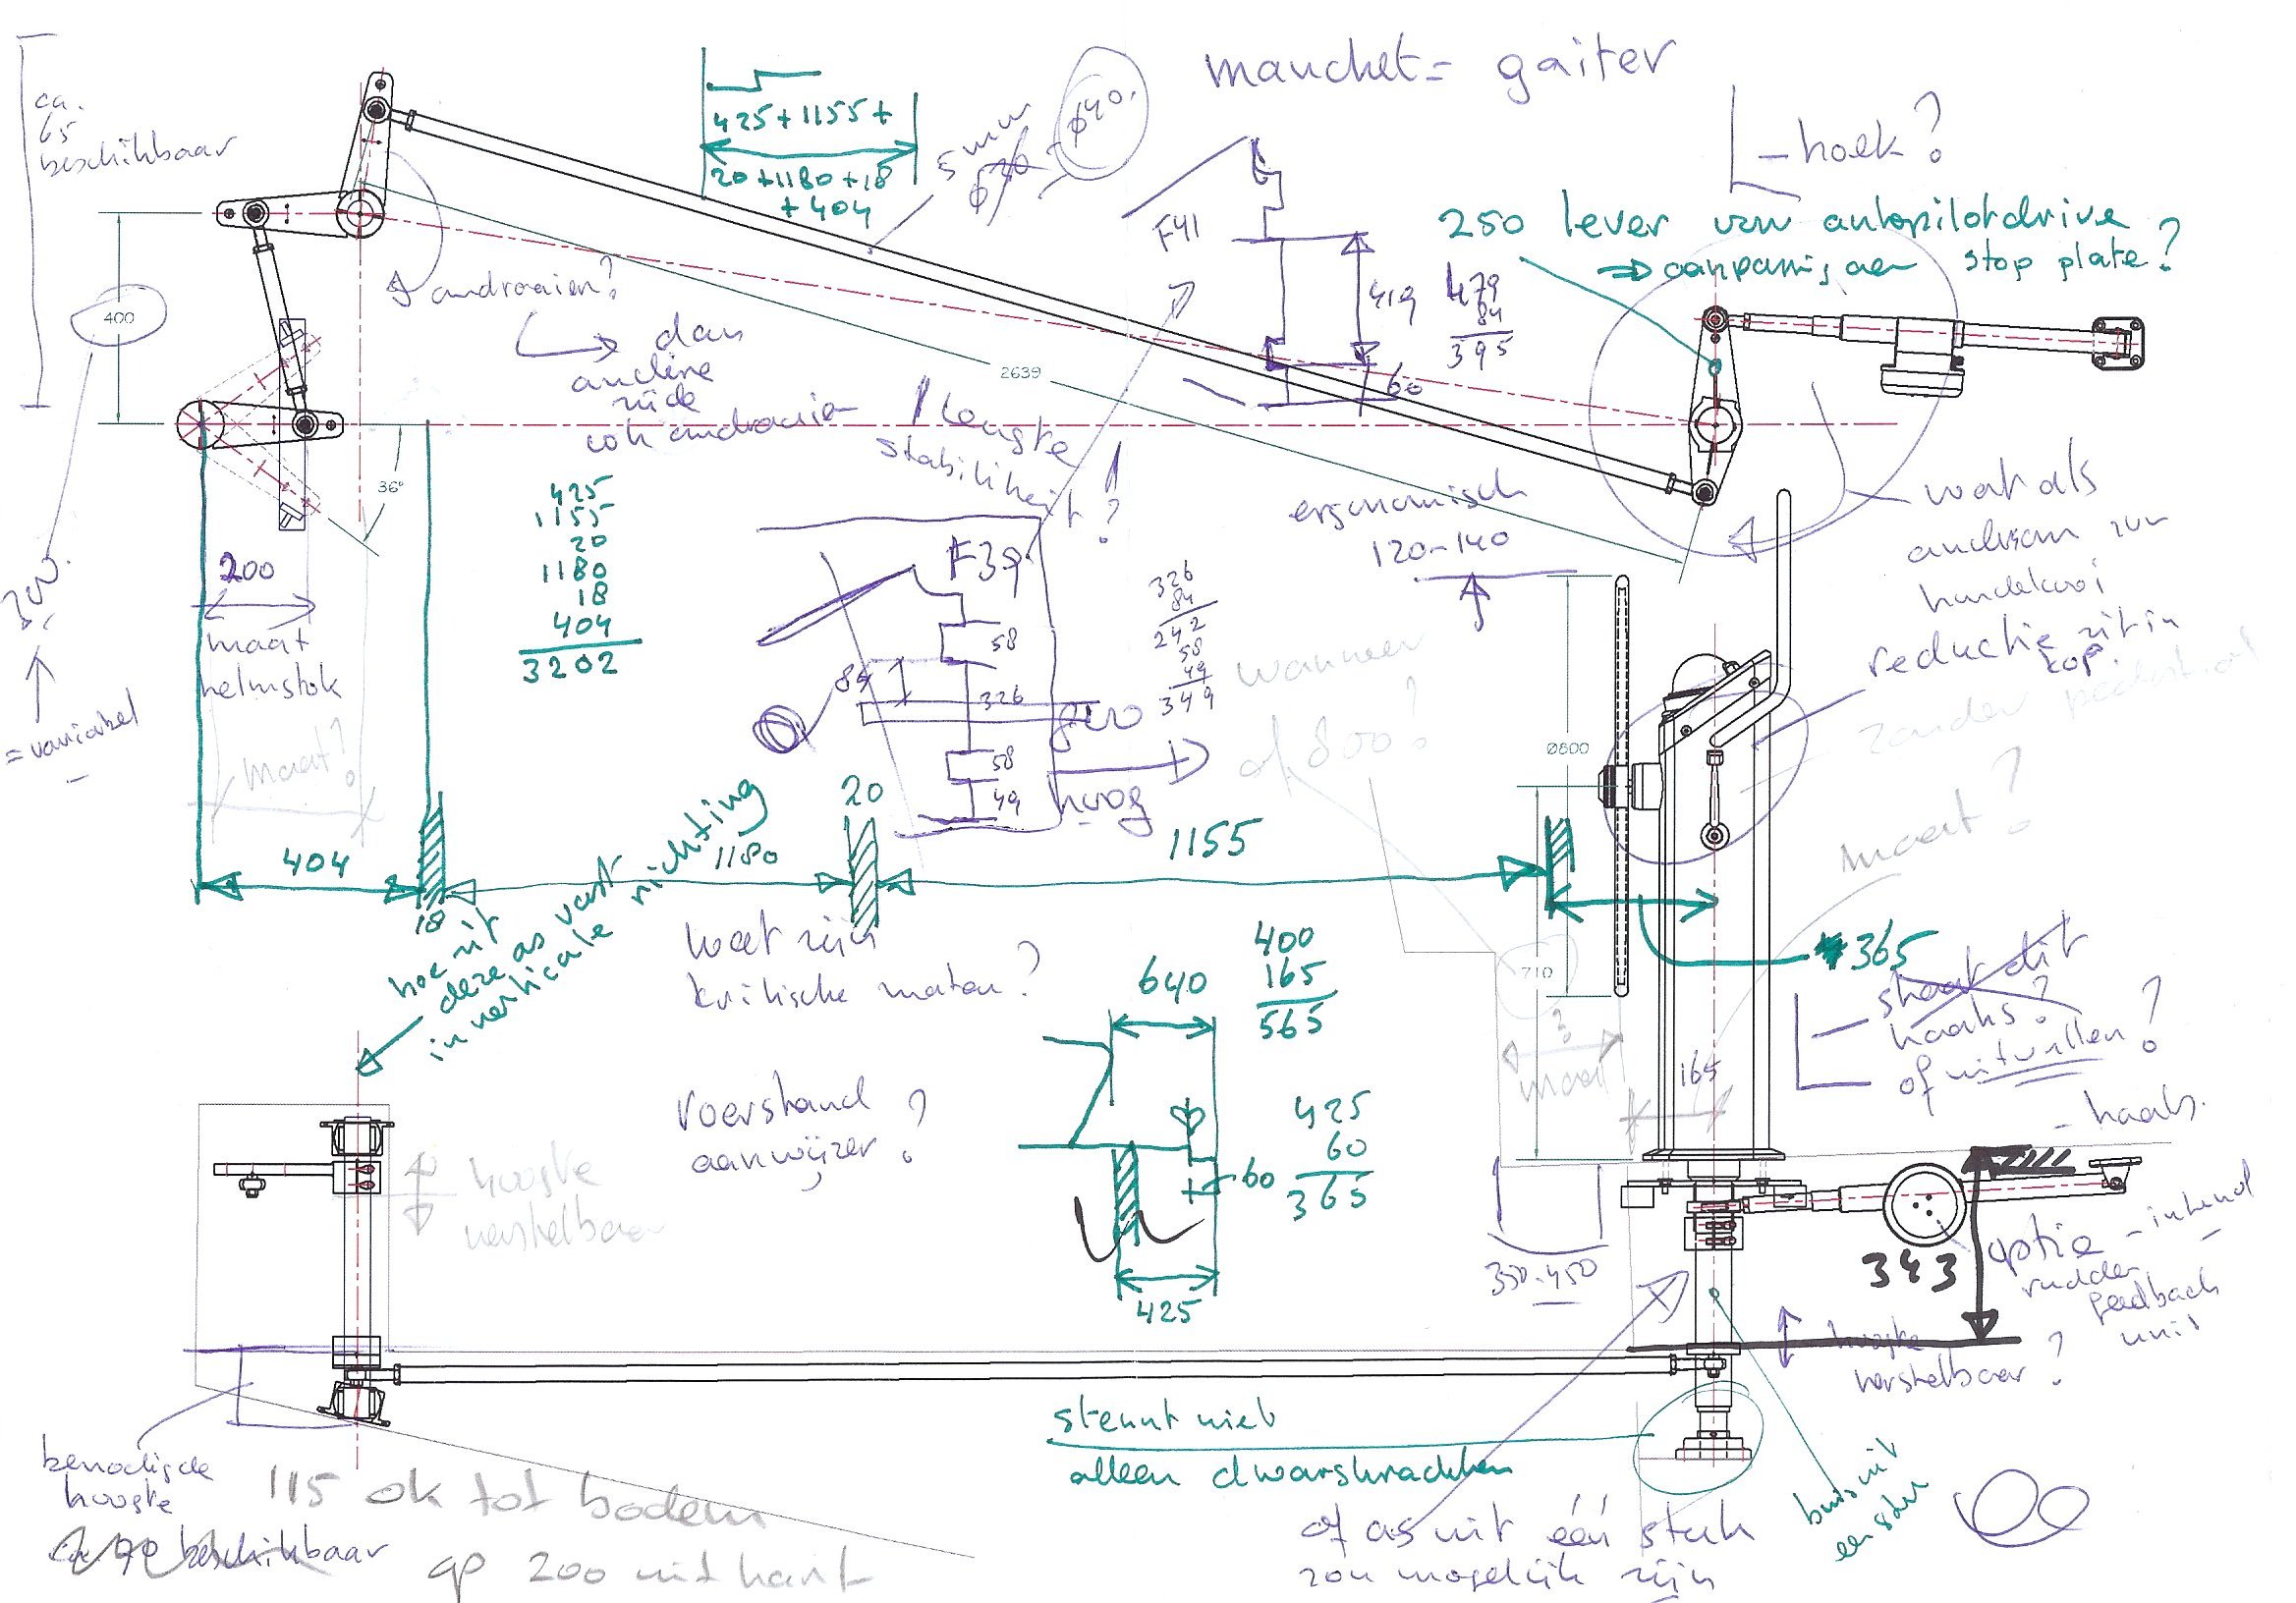 manchet = gaiter
ca.
65
beschikbaar
425+1155+
20+1180+18
+404
5 mm
ø40.
hoek?
F41
419
479
84
395
60
250 lever van autopilotdrive
⇒ aanpassing aan stop plate?
400
omdraaien?
dan
andere
zijde
ook omdraaien
2639
lengte
stabiliteit?
36°
425
1155
20
1180
18
404
3202
200
maat
helmstok
300
= variabel
maat?
F39
58
84
326
58
49
326
84
242
58
49
349
hoog
ergonomisch
120-140
wanneer
of 800?
Ø800
wat als
andersom
reductie zit in
kop.
zonder pedestal
maat?
404
18
1180
20
1155
365
hoe zit
deze as vast
in verticale richting
wat zijn
kritische maten?
640
400
165
565
425
60
365
60
425
710
?
maat
165
staat dit
haaks?
of uitvullen?
haaks.
roerstand
aanwijzer?
hoogte
verstelbaar
350-450
343
optie - inhend
rudder
feedback
unit
hoogte
verstelbaar?
benodigde
hoogte
beschikbaar
115 ok tot bodem
op 200 uit hart
steunt niet
alleen dwarskrachten
of as uit één stuk
zou mogelijk zijn
buis uit